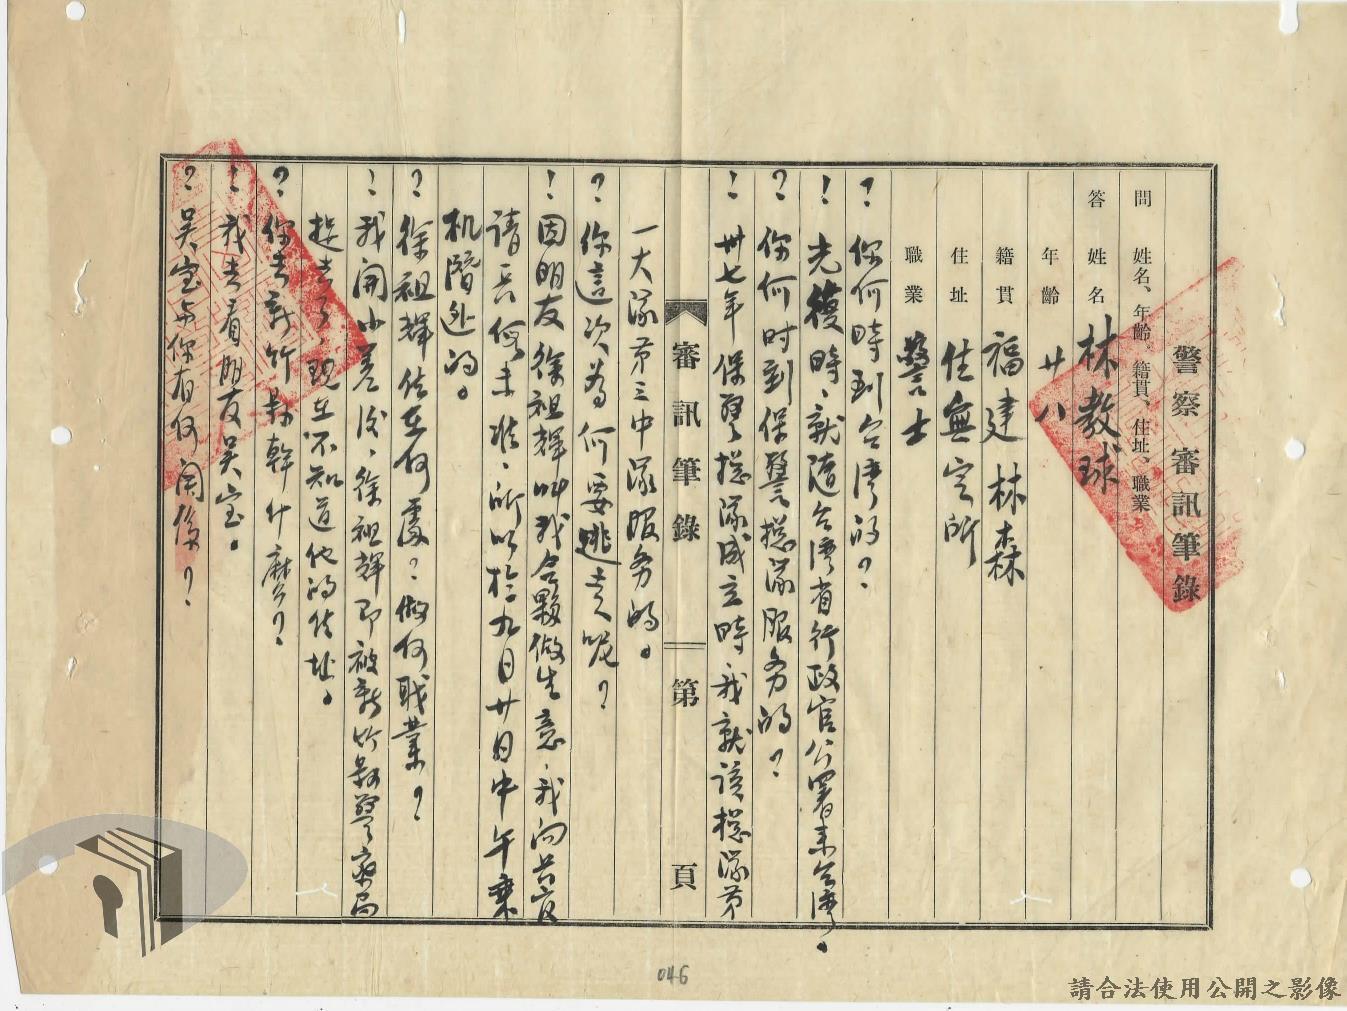 警察審訊筆錄
問 姓名、年齡、籍貫、住址、職業
答 姓名 林教球
年齡 廿八
籍貫 福建林森
住址 住無定所
職業 警士
? 你何時到台湾的?
! 光復時、就隨台湾省行政官公署来台湾。
? 你何时到保警總隊服务的?
! 卅七年保警總隊成立時我就該總隊第
審訊筆錄 第 頁
一大隊第三中隊服务的。
? 你這次為何要逃走呢?
! 因朋友徐祖輝叫我合夥做生意、我向
請長假未准、所以於九月廿日中午乘
机階逃的。
? 徐祖輝住在何處?做何職業?
! 我開小差後、徐祖輝即被新竹縣警察局
捉去了、現在不知道他的住址。
? 你去新竹縣幹什麽?
! 我去看朋友吳宝。
? 吳宝与你有何関係?
046
請合法使用公開之影像